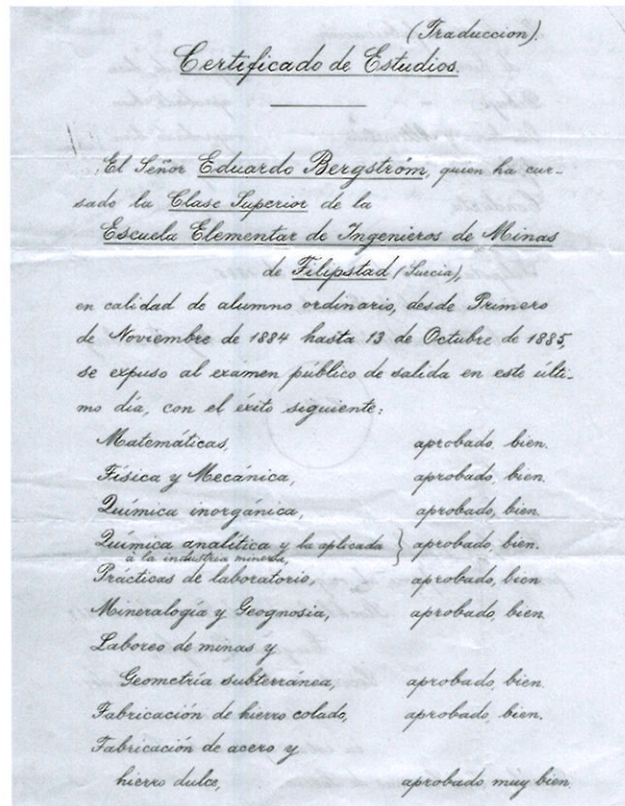 (Traduccion).
Certificado de Estudios.
El Señor Eduardo Bergström, quien ha cur-
sado la Clase Superior de la
Escuela Elementar de Ingenieros de Minas
de Filipstad (Suecia),
en calidad de alumno ordinario, desde Primero
de Noviembre de 1884 hasta 13 de Octubre de 1885,
se expuso al exámen público de salida en este últi-
mo día, con el éxito siguiente:
Matemáticas, aprobado, bien.
Física y Mecánica, aprobado, bien.
Química inorgánica, aprobado, bien.
Química analítica y la aplicada } aprobado, bien.
á la industria minera,
Prácticas de laboratorio, aprobado, bien
Mineralogía y Geognosia, aprobado, bien.
Laboreo de minas y
Geometría subterránea, aprobado, bien.
Fabricación de hierro colado, aprobado, bien.
Fabricación de acero y
hierro dulce, aprobado, muy bien